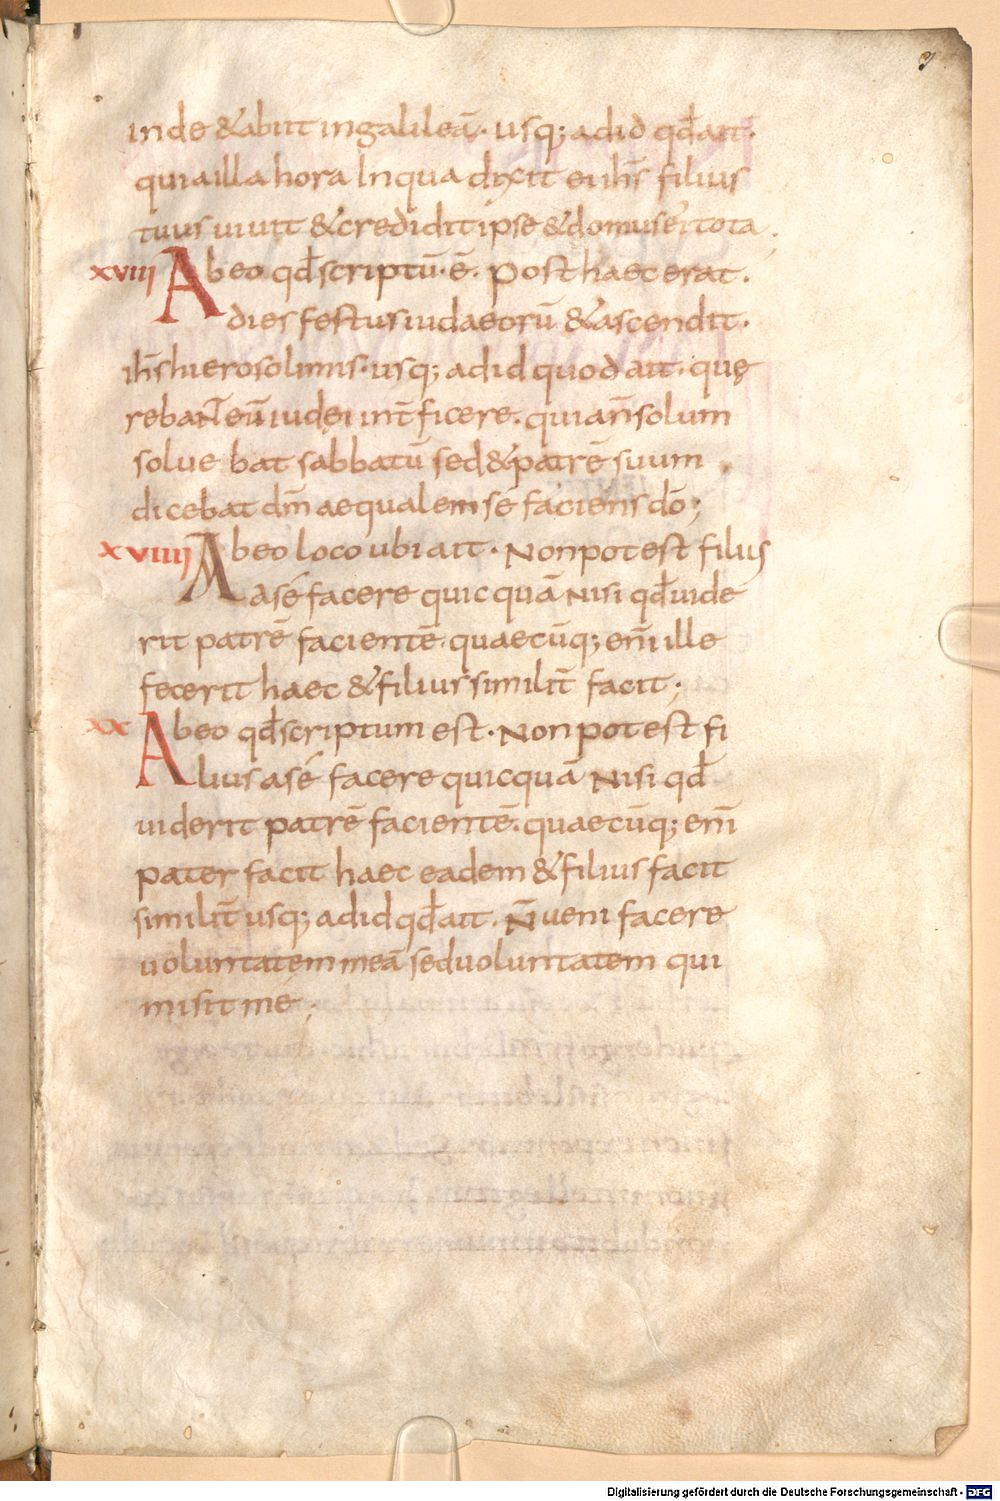 inde & abiit in galileā. usq; adid qđ ait.
quia illa hora In qua dixit ei ihs filius
tuus uiuit & credidit ipse & domus ei tota.
xviii Abeo qđ scriptū. ē. post haec erat.
dies festus iudaeorū & ascendit.
ihs hierosolimis. usq; adid quod ait. quę
rebaNt eū iudęi int̄ficere. quia n̄ solum
soluebat sabbatū sed & patrē suum
dicebat dm̄ aequalem sé faciens dō;
xviiii Abeo loco ubi ait. Non potest filius
a sé facere quicquā Nisi qđ uide
rit patrē facientē. quaecūq; em̄ ille
fecerit haec & filius similit̄ facit;
xx Abeo qđ scriptum est. Non potest fi
lius asé facere quicquā Nisi qđ
uiderit patrē facientē. quaecūq; em̄
pater facit haec eadem & filius facit
similit̄ usq; adid qđ ait. N̄ ueni facere
uoluntatem meā sed uoluntatem qui
misit me;
Digitalisierung gefördert durch die Deutsche Forschungsgemeinschaft - DFG